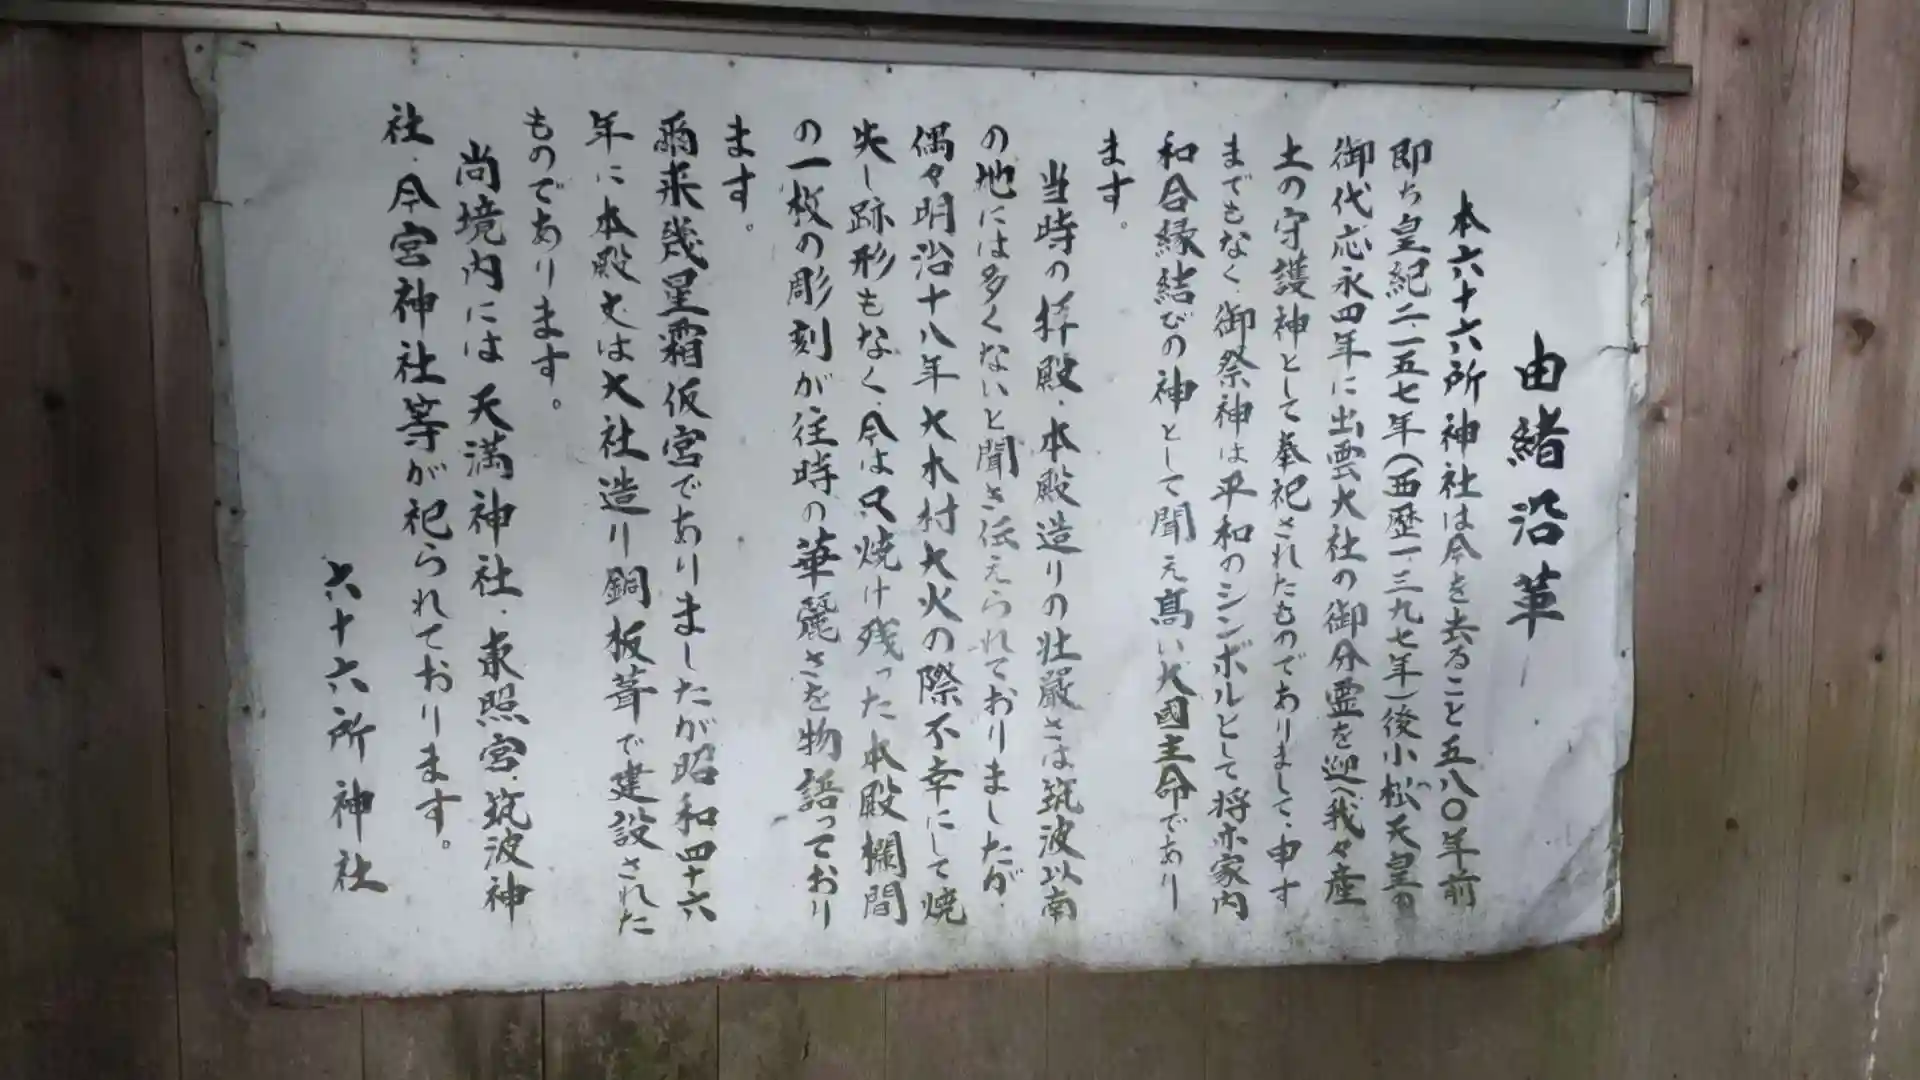 由緒沿革
本六十六所神社は今を去ること五八〇年前
即ち皇紀二、一五七年(西歴一、三九七年)後小松天皇の
御代応永四年に出雲大社の御分霊を迎へ我々産
土の守護神として奉祀されたものでありまして、申す
までもなく御祭神は平和のシンボルとして将亦家内
和合縁結びの神として聞え高い大國主命であり
ます。
当時の拝殿、本殿造りの壮厳さは筑波以南
の地には多くないと聞き伝えられておりましたが、
偶々明治十八年大木村大火の際不幸にして焼
失し跡形もなく、今は只焼け残った本殿欄間
の一枚の彫刻が往時の華麗さを物語っており
ます。
爾来幾星霜仮宮でありましたが昭和四十六
年に本殿又は大社造り銅板葺で建設された
ものであります。
尚境内には天満神社、東照宮、筑波神
社、今宮神社等が祀られております。
六十六所神社